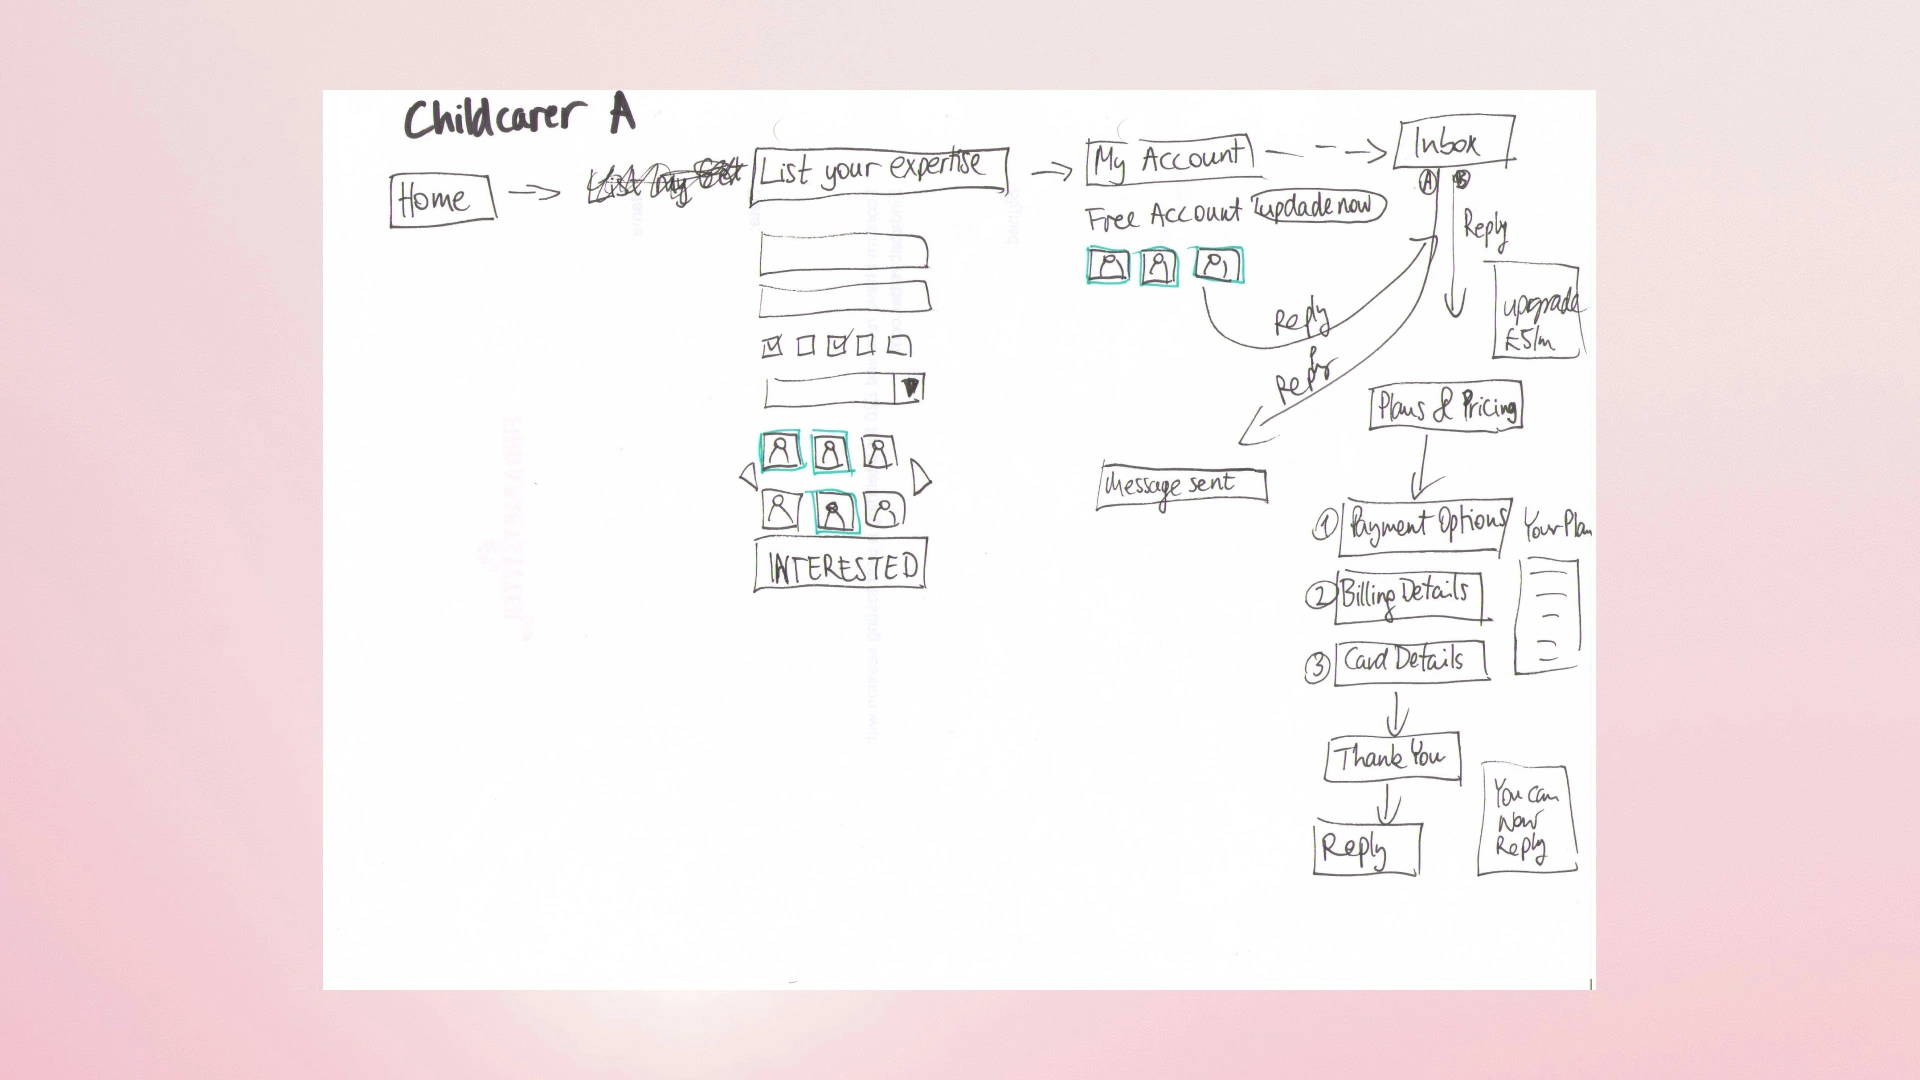 Childcarer A
Home
List my
List your expertise
INTERESTED
My Account
Free Account updade now
Reply
Reply
Message sent
Inbox
A B
Reply
upgrade
£5/m
Plans & Pricing
1 Payment Options
Your Plan
2 Billing Details
3 Card Details
Thank You
Reply
You can
Now
Reply